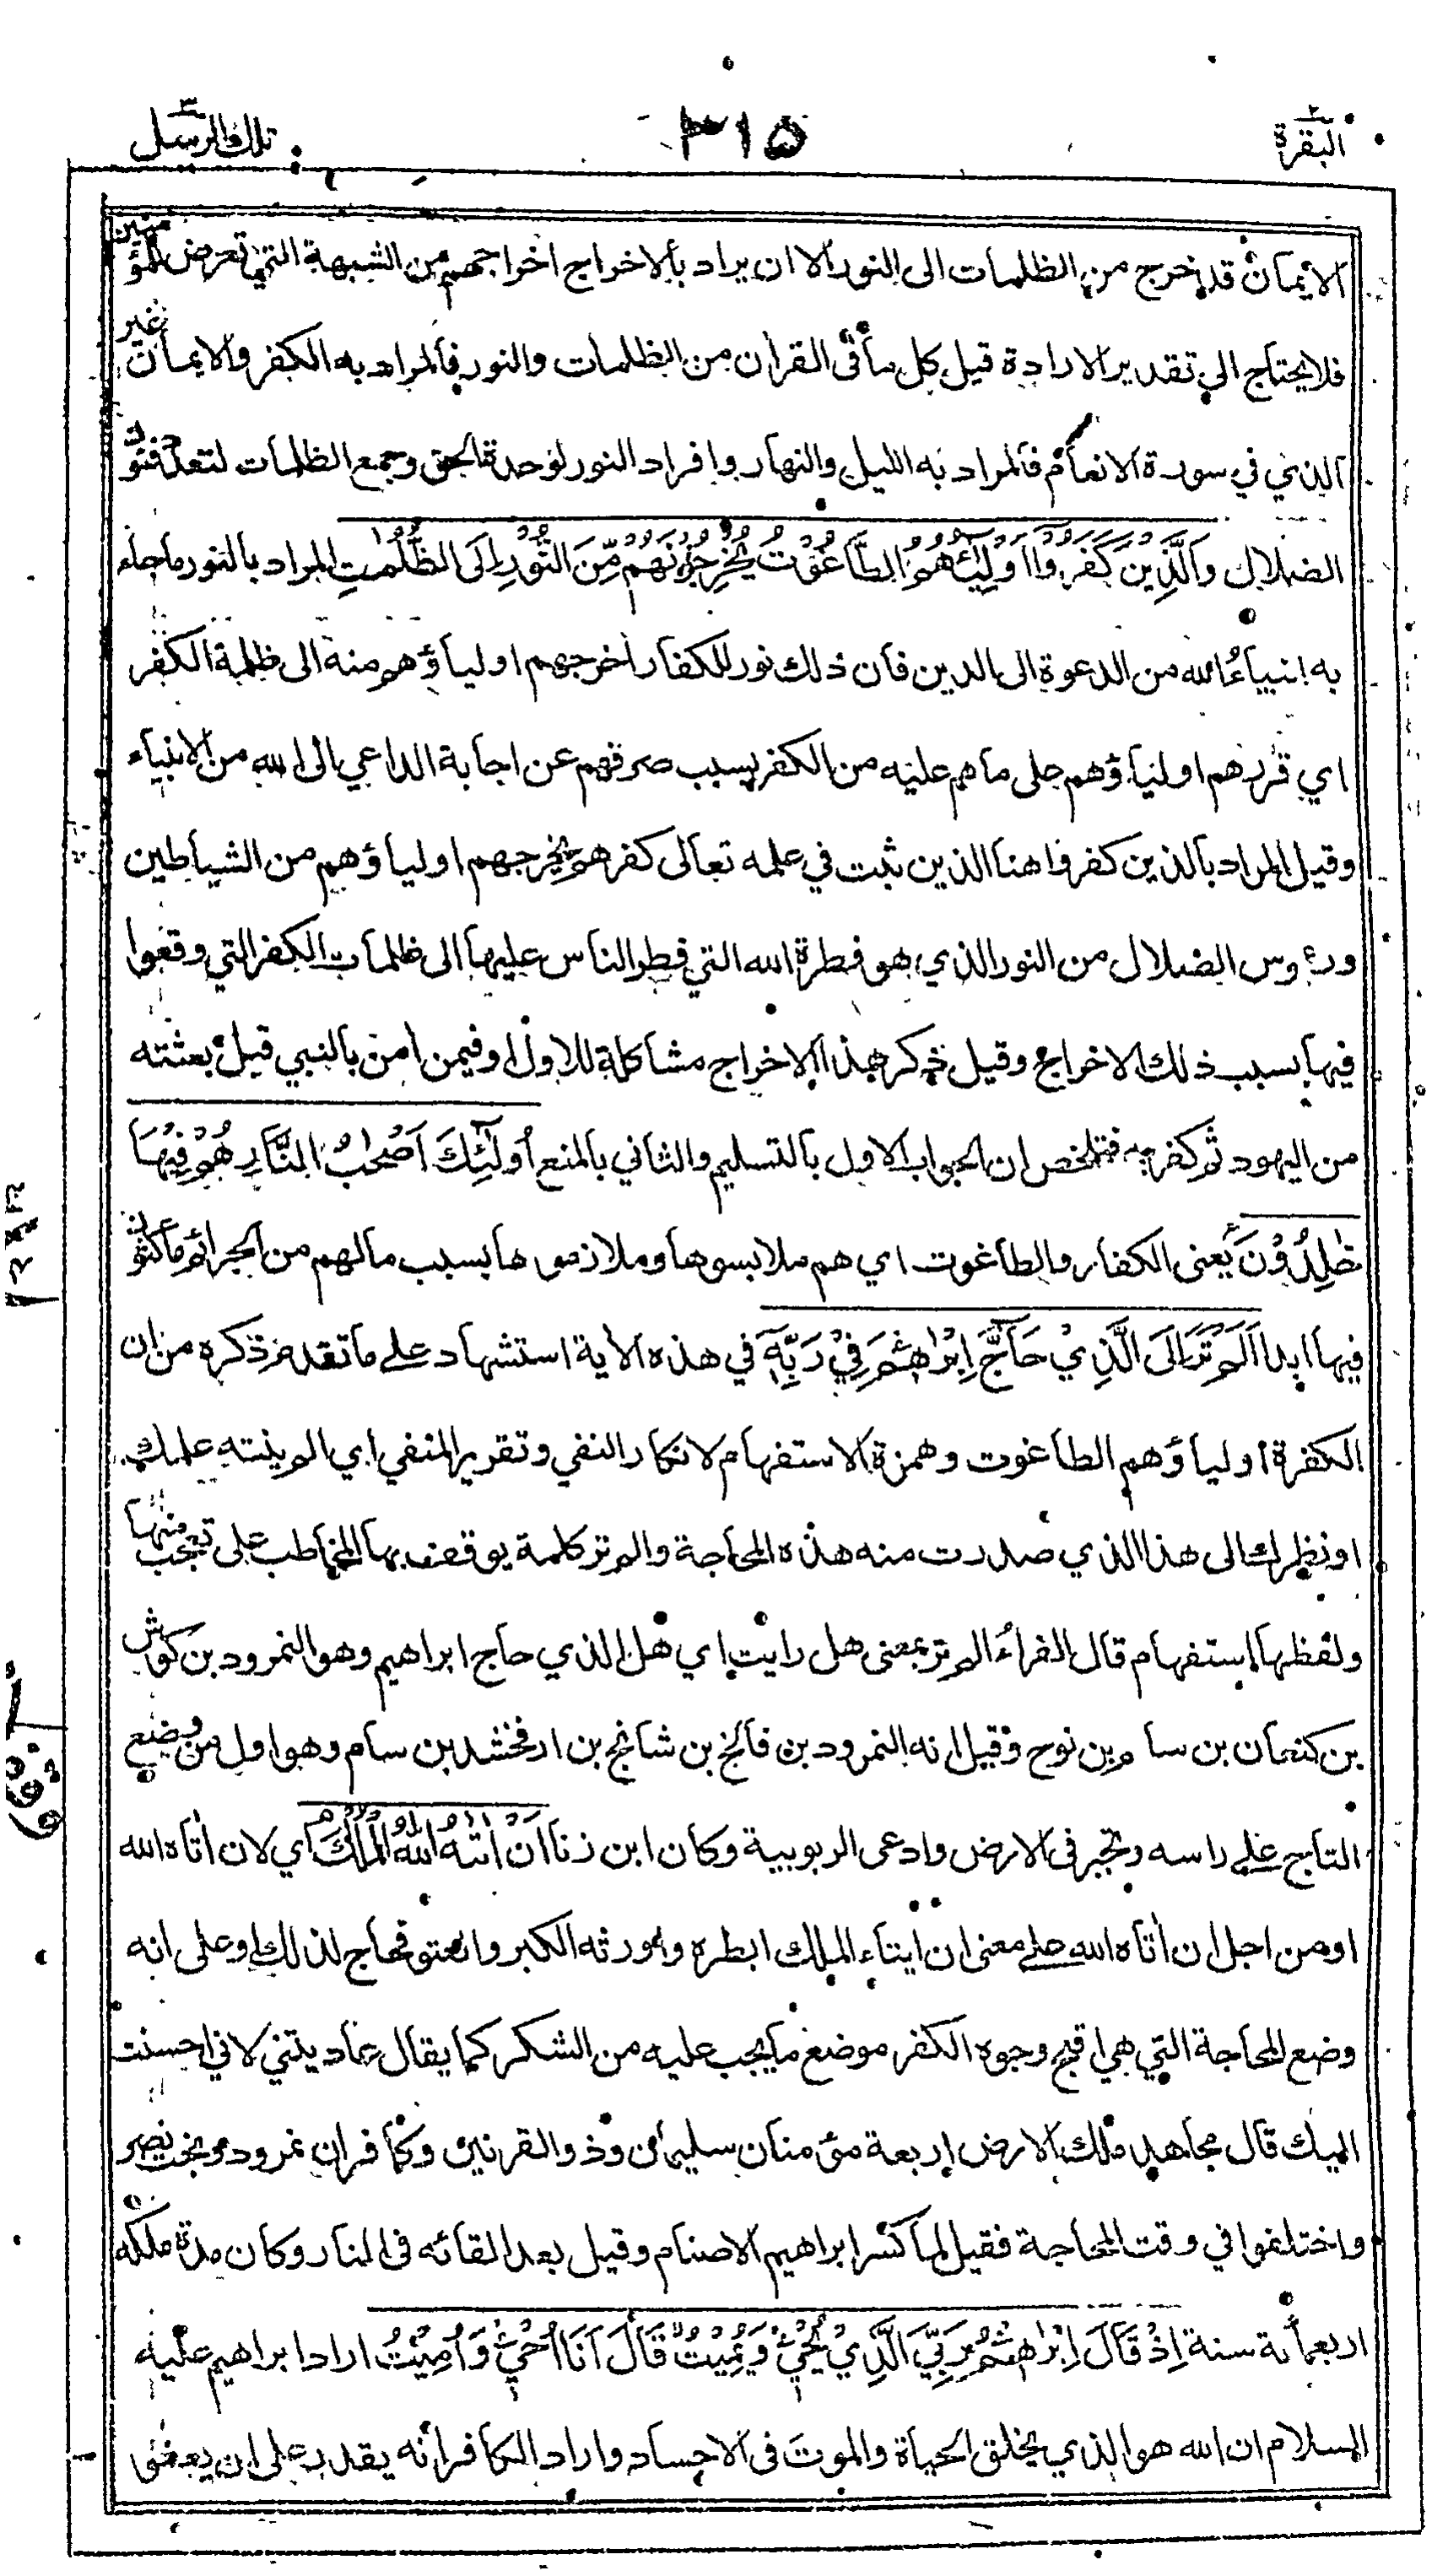 البقرة ٢
٣١٥
تلك الرسل ٣
الايمان قد خرج من الظلمات الى النور الا ان يراد بالاخراج اخراجهم من الشبهة التي تعرض للمؤمنين
فلا يحتاج الى تقدير الارادة قيل كل ما فى القران من الظلمات والنور فالمراد به الكفر والايمان غير
الذي في سورة الانعام فالمراد به الليل والنهار وافراد النور لوحدة الحق وجمع الظلمات لتعدد فنون
الضلال وَالَّذِيْنَ كَفَرُوْا اَوْلِيٰٓـُٔهُمُ الطَّاغُوْتُ يُخْرِجُوْنَهُمْ مِّنَ النُّوْرِ اِلَى الظُّلُمٰتِ المراد بالنور ما جاء
به انبياءُ الله من الدعوة الى الدين فان ذلك نور للكفار اخرجهم اولياؤهم منه الى ظلمة الكفر
اي قررهم اولياؤهم على ما هم عليه من الكفر بسبب صرفهم عن اجابة الداعي الى الله من الانبياء
وقيل المراد بالذين كفروا هنا الذين ثبت في علمه تعالى كفرهم يخرجهم اولياؤهم من الشياطين
ورءوس الضلال من النور الذي هو فطرة الله التي فطر الناس عليها الى ظلمات الكفر التي وقعوا
فيها بسبب ذلك الاخراج وقيل ذكر هذا الاخراج مشاكلة للاول او فيمن امن بالنبي قبل بعثته
من اليهود ثم كفر به فتلخص ان الجواب الاول بالتسليم والثاني بالمنع اُولٰٓئِكَ اَصْحٰبُ النَّارِ هُمْ فِيْهَا
خٰلِدُوْنَ يعنى الكفار والطاغوت اي هم ملابسوها وملازموها بسبب ما لهم من الجرائم ماكثون
فيها ابدا اَلَمْ تَرَ اِلَى الَّذِيْ حَآجَّ اِبْرٰهٖمَ فِيْ رَبِّهٖٓ في هذه الاية استشهاد على ما تقدم ذكره من ان
الكفرة اولياؤهم الطاغوت وهمزة الاستفهام لانكار النفي وتقرير المنفي اي الم ينته علمك
او نظرك الى هذا الذي صدرت منه هذه المحاجة والم تر كلمة يوقف بها المخاطب على تعجب منها
ولفظها استفهام قال الفراءُ الم تر بمعنى هل رايت اي هل الذي حاج ابراهيم وهو النمرود بن كوش
بن كنعان بن سام بن نوح وقيل انه النمرود بن فالخ بن شالخ بن ارفخشد بن سام وهو اول من وضع
التاج على راسه وتجبر فى الارض وادعى الربوبية وكان ابن زنا اَنْ اٰتٰىهُ اللّٰهُ الْمُلْكَ اي لان اتاه الله
او من اجل ان اتاه الله على معنى ان ايتاء الملك ابطره واورثه الكبر والعتو فحاج لذلك او على انه
وضع المحاجة التي هي اقبح وجوه الكفر موضع ما يجب عليه من الشكر كما يقال عاديتني لاني احسنت
اليك قال مجاهد ملك الارض اربعة مؤمنان سليمان وذو القرنين وكافران نمرود وبخت نصر
واختلفوا في وقت المحاجة فقيل لما كسر ابراهيم الاصنام وقيل بعد القائه فى النار وكان مدة ملكه
اربعمائة سنة اِذْ قَالَ اِبْرٰهٖمُ رَبِّيَ الَّذِيْ يُحْيٖ وَيُمِيْتُ قَالَ اَنَا اُحْيٖ وَاُمِيْتُ اراد ابراهيم عليه
السلام ان الله هو الذي يخلق الحياة والموت فى الاجساد واراد الكافر انه يقدر على ان يعفو